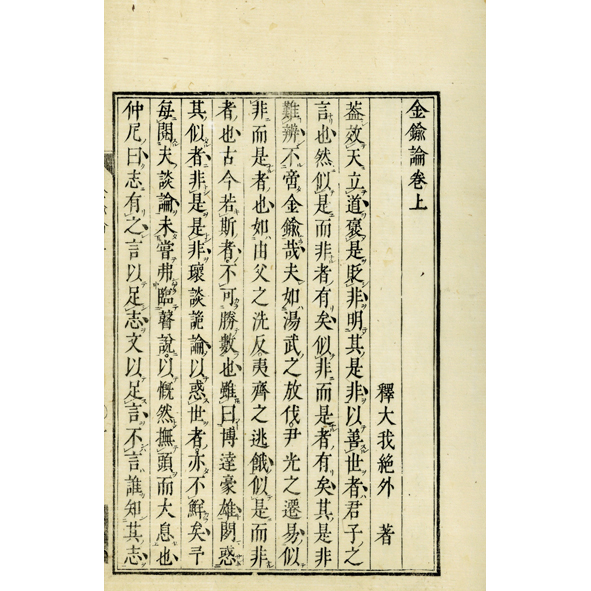 金鍮論卷上
釋大我絕外 著
葢效天立道褒是貶非明其是非以善世者君子之
言也然似是而非者有矣似非而是者有矣其是非
難辨不啻金鍮哉夫如湯武之放伐尹光之遷易似
非而是者也如由父之洗反夷齊之逃餓似是而非
者也古今若斯者不可勝數也雖曰博達豪雄閎惑
其似者非是是非瓌談詭論以惑世者亦不鮮矣予
每閱夫談論未嘗弗臨聲說以慨然撫頭而大息也
仲尼曰志有之言以足志文以足言不言誰知其志